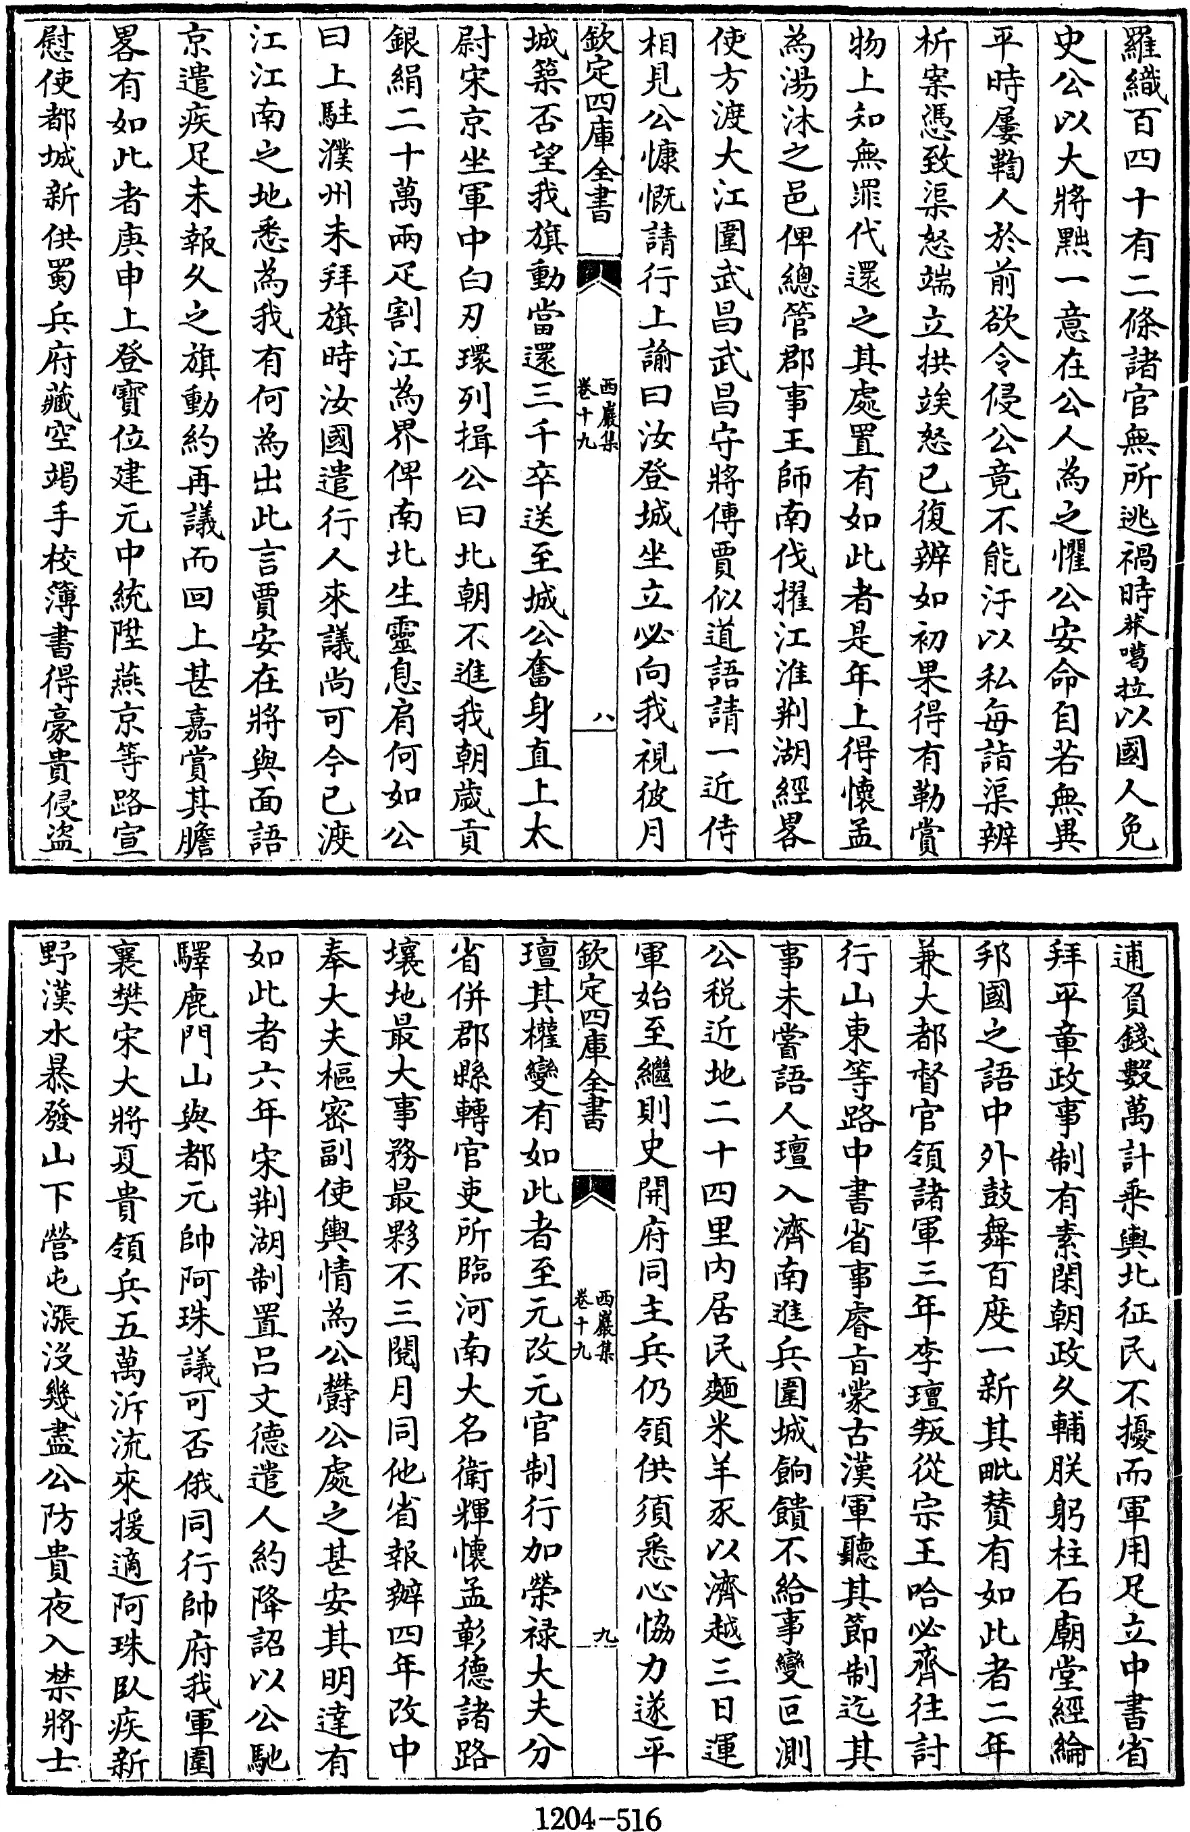 羅織百四十有二條諸官無所逃禍時茂噶拉以國人免
史公以大將黜一意在公人為之懼公安命自若無異
平時屢鞫人於前欲令侵公竟不能汙以私每詣渠辨
析案憑致渠怒端立拱竢怒已復辨如初果得有勒賞
物上知無罪代還之其處置有如此者是年上得懷孟
為湯沐之邑俾總管郡事王師南伐擢江淮荆湖經畧
使方渡大江圍武昌武昌守將傳賈似道語請一近侍
相見公慷慨請行上諭曰汝登城坐立必向我視彼月
欽定四庫全書
西巖集
卷十九
八
城築否望我旗動當還三千卒送至城公奮身直上太
尉宋京坐軍中白刃環列揖公曰北朝不進我朝歲貢
銀絹二十萬兩疋割江為界俾南北生靈息肩何如公
曰上駐濮州未拜旗時汝國遣行人來議尚可今已渡
江江南之地悉為我有何為出此言賈安在將與面語
京遣疾足未報久之旗動約再議而回上甚嘉賞其膽
畧有如此者庚申上登寶位建元中統陞燕京等路宣
慰使都城新供蜀兵府藏空竭手校簿書得豪貴侵盜
逋負錢數萬計乘輿北征民不擾而軍用足立中書省
拜平章政事制有素閑朝政久輔朕躬柱石廟堂經綸
邦國之語中外鼓舞百度一新其毗贊有如此者二年
兼大都督官領諸軍三年李璮叛從宗王哈必齊往討
行山東等路中書省事睿旨蒙古漢軍聽其節制迄其
事未嘗語人璮入濟南進兵圍城餉饋不給事變叵測
公稅近地二十四里内居民麵米羊豕以濟越三日運
軍始至繼則史開府同主兵仍領供須悉心恊力遂平
欽定四庫全書
西巖集
卷十九
九
璮其權變有如此者至元改元官制行加榮禄大夫分
省併郡縣轉官吏所臨河南大名衛輝懷孟彰德諸路
壤地最大事務最夥不三閱月同他省報辦四年改中
奉大夫樞密副使輿情為公欝公處之甚安其明達有
如此者六年宋荆湖制置吕文德遣人約降詔以公馳
驛鹿門山與都元帥阿珠議可否俄同行帥府我軍圍
襄樊宋大將夏貴領兵五萬泝流來援適阿珠臥疾新
野漢水暴發山下營屯漲没幾盡公防貴夜入禁將士
1204-516